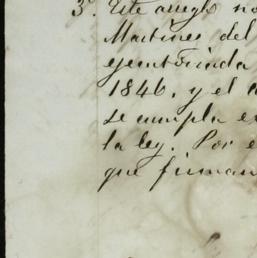 3º. Este arreglo no
Martines del
ejecutoriada
1846, y el
se cumpla e
la ley. Por e
que firman